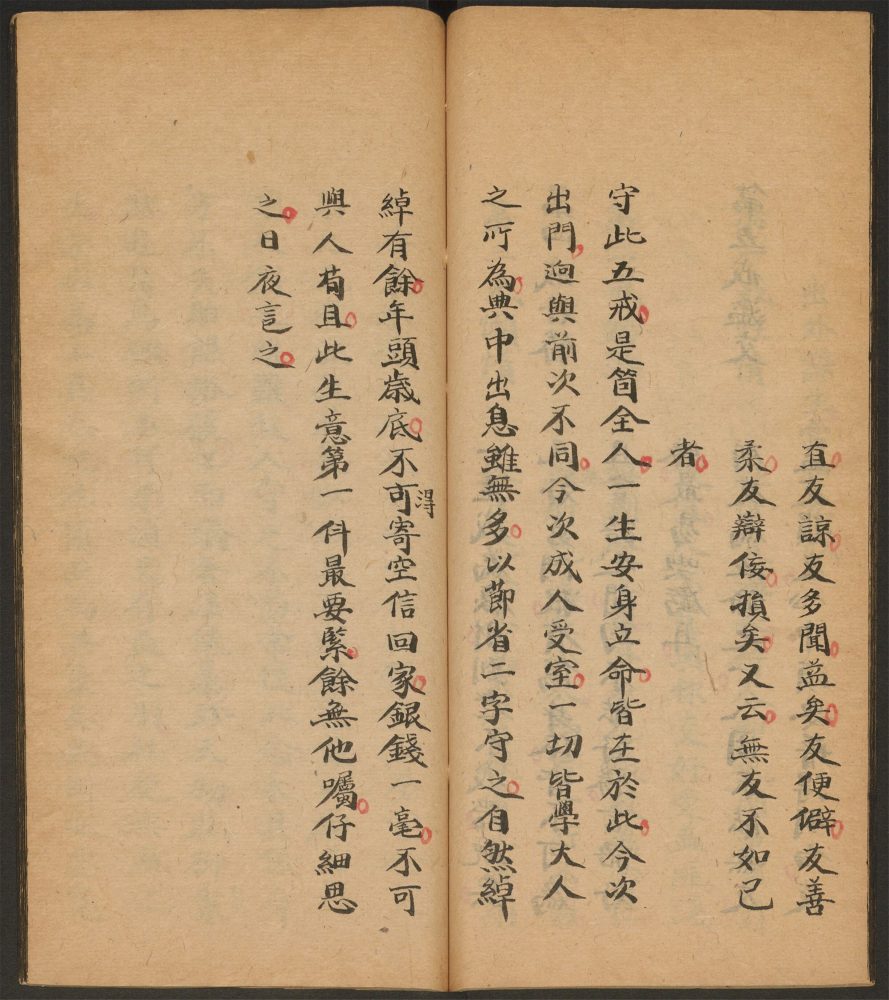 直友諒友多聞益矣友便僻友善
柔友辯佞損矣又云無友不如己
者
守此五戒是箇全人一生安身立命皆在於此今次
出門逈與前次不同今次成人受室一切皆學大人
之所為典中出息雖無多以節省二字守之自然綽
綽有餘年頭歲底不可得寄空信回家銀錢一毫不可
與人苟且此生意第一件最要緊餘無他囑仔細思
之日夜言之